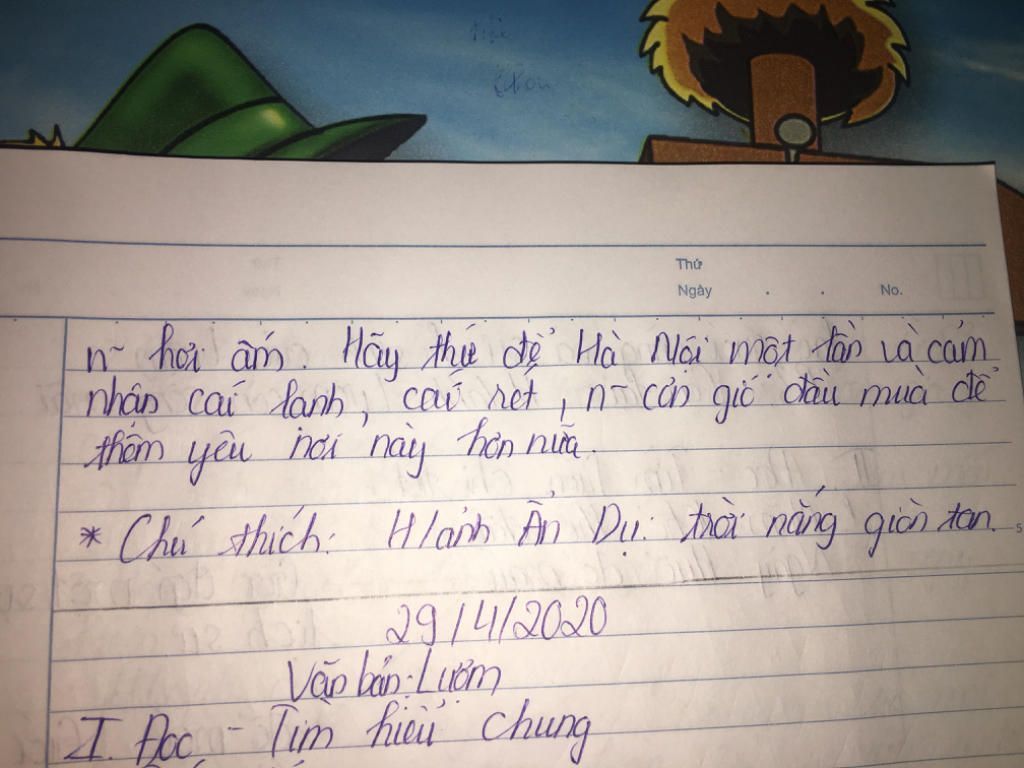 Thứ
Ngày . . No.
n~ hơi ấm. Hãy thử để Hà Nội một lần và cảm
nhận cái lạnh, cái rét, n~ cơn gió đầu mùa để
thêm yêu nơi này hơn nữa.
* Chú thích: H/ảnh Ẩn Dụ: trời nắng giòn tan.
5
29/4/2020
Văn bản: Lượm
I. Đọc - Tìm hiểu chung